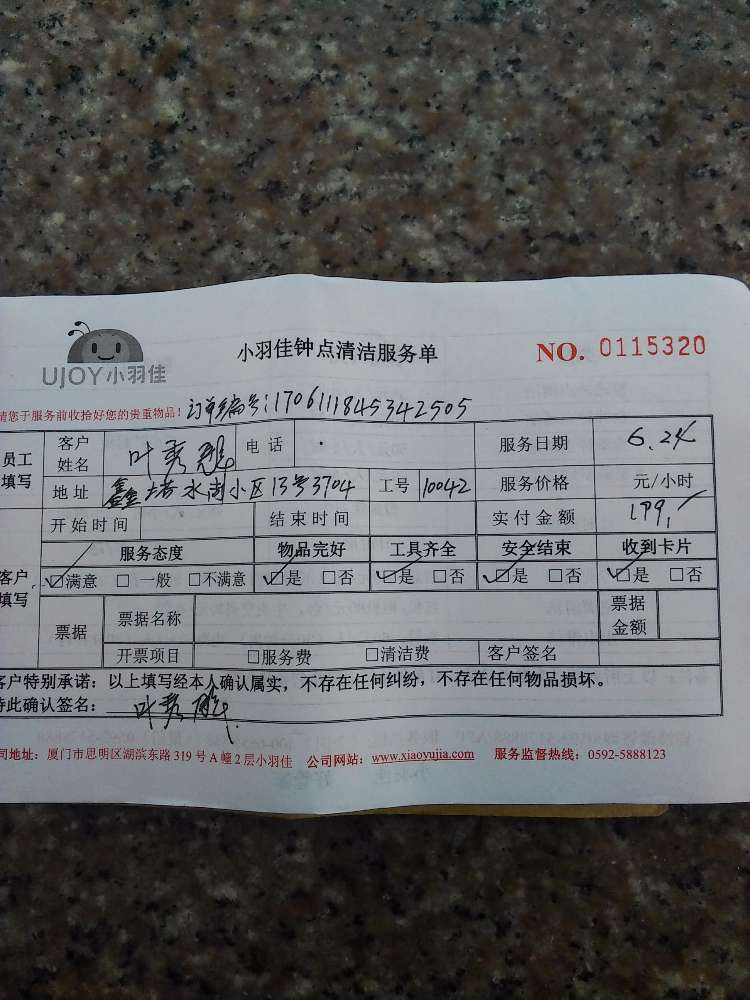 小羽佳钟点清洁服务单
NO. 0115320
UJOY小羽佳
请您于服务前收拾好您的贵重物品！订单编号：1706111845342505
员工填写 客户姓名 叶秀 电话 服务日期 6.24
地址 鑫塔水尚小区13号3704 工号 10042 服务价格 元/小时
开始时间 结束时间 实付金额 199
客户填写 服务态度 物品完好 工具齐全 安全结束 收到卡片
☑满意 □一般 □不满意 ☑是 □否 ☑是 □否 ☑是 □否 ☑是 □否
票据 票据名称 票据金额
开票项目 □服务费 □清洁费 客户签名
客户特别承诺：以上填写经本人确认属实，不存在任何纠纷，不存在任何物品损坏。
特此确认签名： 叶秀
公司地址：厦门市思明区湖滨东路319号A幢2层小羽佳 公司网站：www.xiaoyujia.com 服务监督热线：0592-5888123